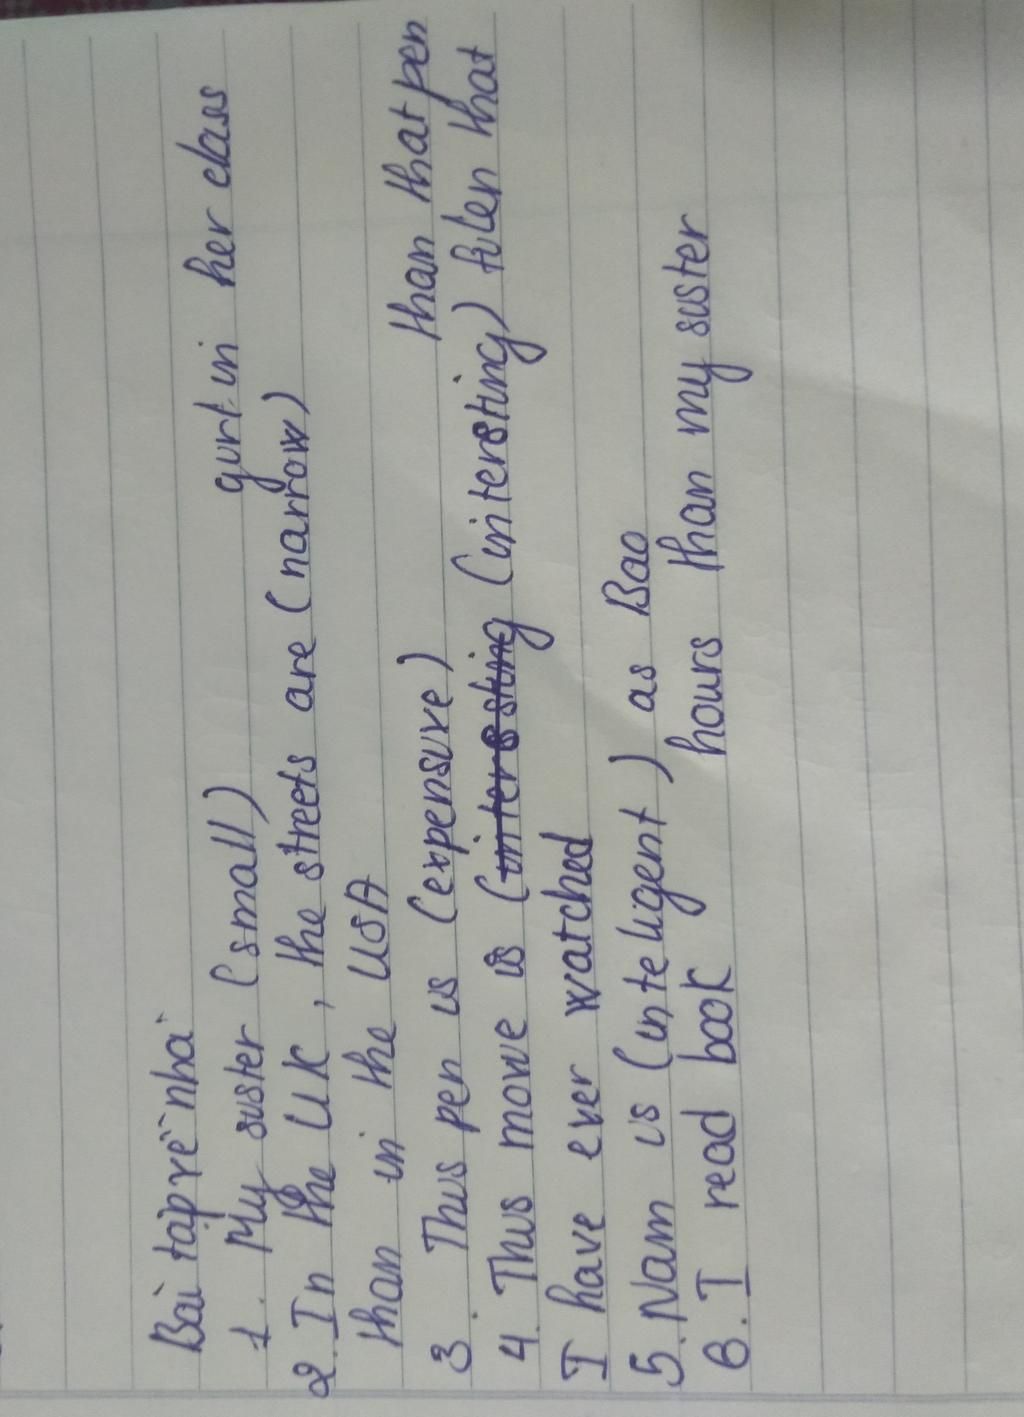 Bài tập về nhà
1. My sister (small) girl in her class
2. In the UK, the streets are (narrow)
than in the USA
3. This pen is (expensive) than that pen
4. This movie is (interesting (interesting) film that
I have ever watched
5. Nam is (inteligent) as Bao
6. I read book hours than my sister